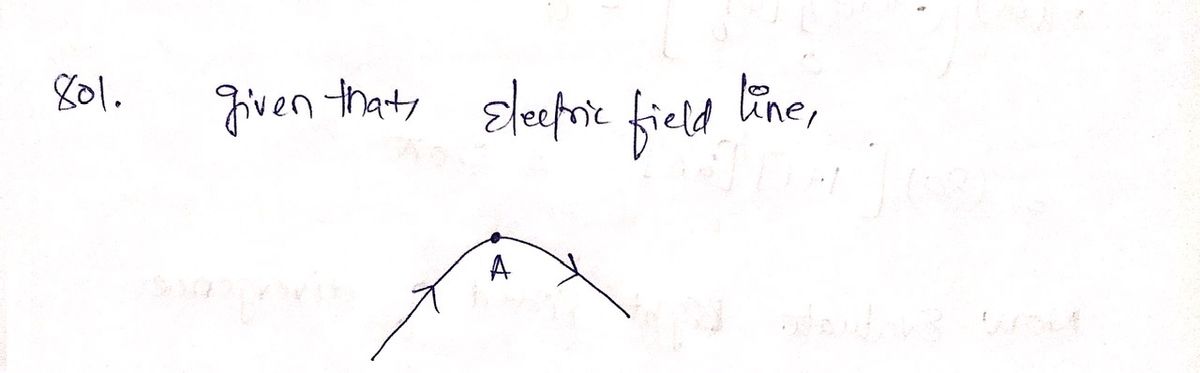 Sol. given that, Electric field line,
A